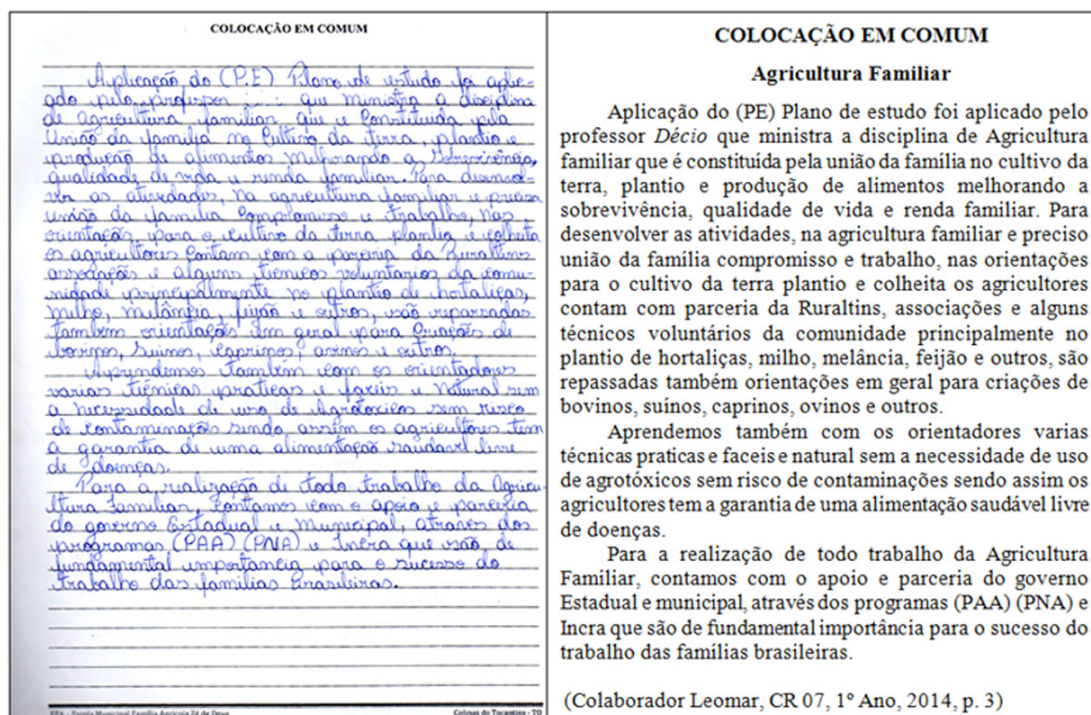 COLOCAÇÃO EM COMUM
Aplicação do (P.E) Plano de estudo foi aplic-
ado pelo professor ..... que ministra a disciplina
de agricultura familiar que e constituida pela
União da família no Cultivo da terra, plantio e
produção de alimentos melhorando a sobrevivência,
qualidade de vida e renda familiar. Para desenvol-
ver as atividades, na agricultura familiar e preciso
união da família compromisso e trabalho, nas
orientações para o cultivo da terra plantio e colheita
os agricultores contam com a parceria da Ruraltins
associações e alguns técnicos voluntarios da comu-
nidade principalmente no plantio de hortaliças,
milho, melância, feijão e outros, são repassadas
também orientações em geral para Criações de
bovinos, suinos, caprinos, ovinos e outros.
Aprendemos também com os orientadores
varias técnicas praticas e faceis e natural sem
a necessidade de uso de Agrotoxicos sem risco
de contaminações sendo assim os agricultores tem
a garantia de uma alimentação saudavel livre
de doenças.
Para a realização de todo trabalho da Agricu-
ltura Familiar, contamos com o apoio e parceria
do governo Estadual e Municipal, atraves dos
programas (PAA) (PNA) e Incra que são de
fundamental importancia para o sucesso do
trabalho das famílias Brasileiras.
Escola Municipal Família Agrícola Zé de Deus
Colinas do Tocantins - TO
COLOCAÇÃO EM COMUM
Agricultura Familiar
Aplicação do (PE) Plano de estudo foi aplicado pelo
professor Décio que ministra a disciplina de Agricultura
familiar que é constituída pela união da família no cultivo da
terra, plantio e produção de alimentos melhorando a
sobrevivência, qualidade de vida e renda familiar. Para
desenvolver as atividades, na agricultura familiar e preciso
união da família compromisso e trabalho, nas orientações
para o cultivo da terra plantio e colheita os agricultores
contam com parceria da Ruraltins, associações e alguns
técnicos voluntários da comunidade principalmente no
plantio de hortaliças, milho, melância, feijão e outros, são
repassadas também orientações em geral para criações de
bovinos, suínos, caprinos, ovinos e outros.
Aprendemos também com os orientadores varias
técnicas praticas e faceis e natural sem a necessidade de uso
de agrotóxicos sem risco de contaminações sendo assim os
agricultores tem a garantia de uma alimentação saudável livre
de doenças.
Para a realização de todo trabalho da Agricultura
Familiar, contamos com o apoio e parceria do governo
Estadual e municipal, através dos programas (PAA) (PNA) e
Incra que são de fundamental importância para o sucesso do
trabalho das famílias brasileiras.
(Colaborador Leomar, CR 07, 1º Ano, 2014, p. 3)